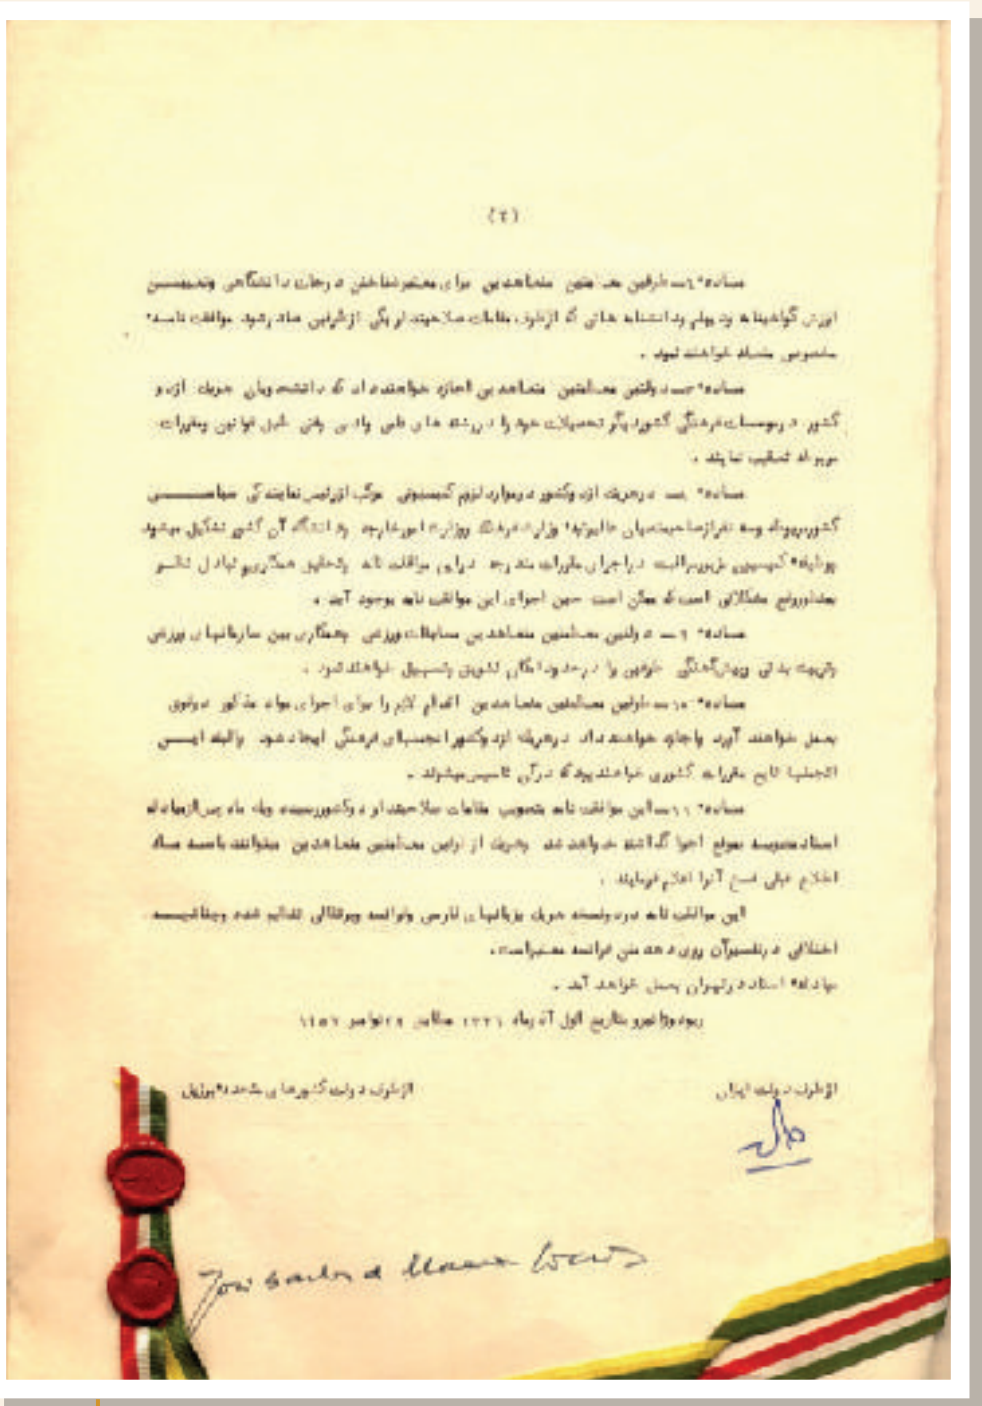 (۲)
ماده ۶ــ طرفین معظمین متعاهدین برای معتبر شناختن درجات دانشگاهی وتعییـــن
ارزش گواهینامه ودیپلم ودانشنامه هائی که ازطرف مقامات صلاحیتدار یکی ازطرفین صادرشود موافقت نامـهٴ
مخصوص منعقد خواهند نمود .
ماده ۷ــ دولتین معظمتین متعاهدین اجازه خواهندداد که دانشجویان هریک ازدو
کشور درموسسات فرهنگی کشوردیگر تحصیلات خود را در رشته های علمی وادبی وفنی طبق قوانین ومقررات
مربوطه تعقیب نمایند .
ماده ۸ــ درهریک ازدوکشور درموارد لزوم کمیسیونی مرکب ازرئیس نمایندگی سیاســـی
کشورمربوطه وسه نفرازصاحبمنصبان عالیرتبهٴ وزارت فرهنگ ووزارت امورخارجه ودانشگاه آن کشور تشکیل میشود
وظیفهٴ کمیسیون مزبورمراقبت دراجرای مقررات مندرجه دراین موافقت نامه وتحقیق همکاری وتبادل نظـر
بمنظوررفع مشکلاتی است که ممکن است حین اجرای این موافقت نامه بوجود آید .
ماده ۹ــ دولتین معظمتین متعاهدین مسابقات ورزشی وهمکاری بین سازمانهای ورزشی
وتربیت بدنی وپیش آهنگی طرفین را درحدود امکان تشویق وتسهیل خواهند نمود .
ماده ۱۰ــ طرفین معظمین متعاهدین اقدام لازم را برای اجرای مواد مذکور درفوق
بعمل خواهند آورد واجازه خواهند داد درهریک ازدوکشور انجمنهای فرهنگی ایجاد شود والبته ایـــن
انجمنها تابع مقررات کشوری خواهند بود که درآن تاسیس میشوند .
ماده ۱۱ــ این موافقت نامه بتصویب مقامات صلاحیتدار دوکشوررسیده ویک ماه پس ازمبادلهٴ
اسناد مصوبه بموقع اجرا گذاشته خواهد شد وهریک از طرفین معظمین متعاهدین میتوانند باســـه مـــاه
اعلام قبلی فسخ آنرا اعلام فرمایند .
این موافقت نامه در دونسخه هریک بزبانهای فارسی وفرانسه وپرتقالی تنظیم شده وچنانچـــه
اختلافی درتفسیرآن روی دهد متن فرانسه معتبراست .
مبادلهٴ اسناد درتهران بعمل خواهد آمد .
ریودوژانیرو بتاریخ اول آذرماه ۱۳۳۶ مطابق ۲۲ نوامبر ۱۹۵۷
ازطرف دولت ایران
ازطرف دولت کشورهای متحده برزیل
José Carlos de Macedo Soares